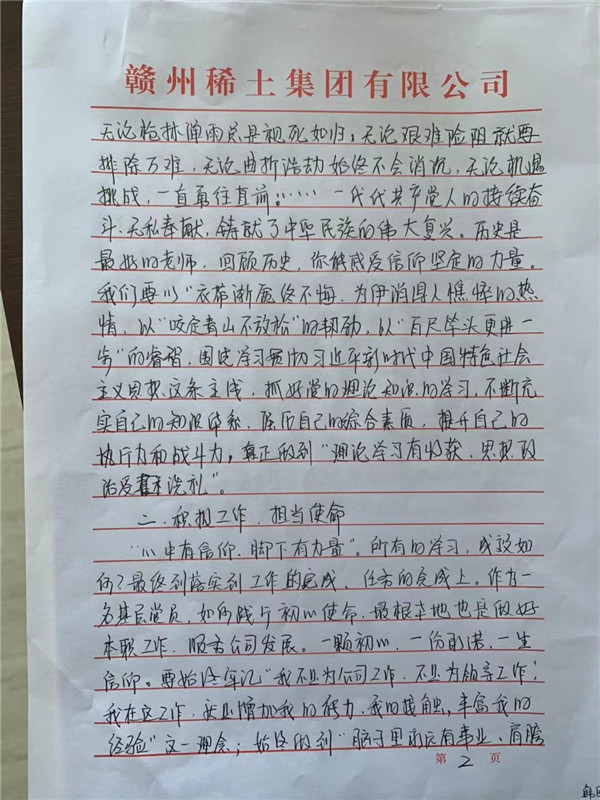 赣州稀土集团有限公司
无论枪林弹雨总是视死如归，无论艰难险阻就要
排除万难，无论曲折浩劫始终不会消沉，无论机遇
挑战，一直勇往直前……一代代共产党人的接续奋
斗、无私奉献，铸就了中华民族的伟大复兴。历史是
最好的老师，回顾历史，你能感受信仰坚定的力量。
我们要以“衣带渐宽终不悔，为伊消得人憔悴的热
情，以“咬定青山不放松”的韧劲，以“百尺竿头更进一
步”的睿智，围绕学习贯彻习近平新时代中国特色社会
主义思想这条主线，抓好党的理论知识的学习，不断充
实自己的知识体系，自己的综合素质，提升自己的
执行力和战斗力，真正做到“理论学习有收获，思想政
治受洗礼”。
二、积极工作、担当使命
“心中有信仰，脚下有力量”。所有的学习，成效如
何？最终到落实到工作的完成、任务的完成上。作为一
名基层党员，如何践行初心使命，最根本地也是做好
本职工作，服务公司发展。一颗初心，一份承诺，一生
信仰。要始终牢记“我不是为公司工作，不是为领导工作；
我在这工作，是增加我的努力，我的接触，丰富我的
经验”这一理念；始终做到“脑子里永远有事业、肩膀
第 2 页